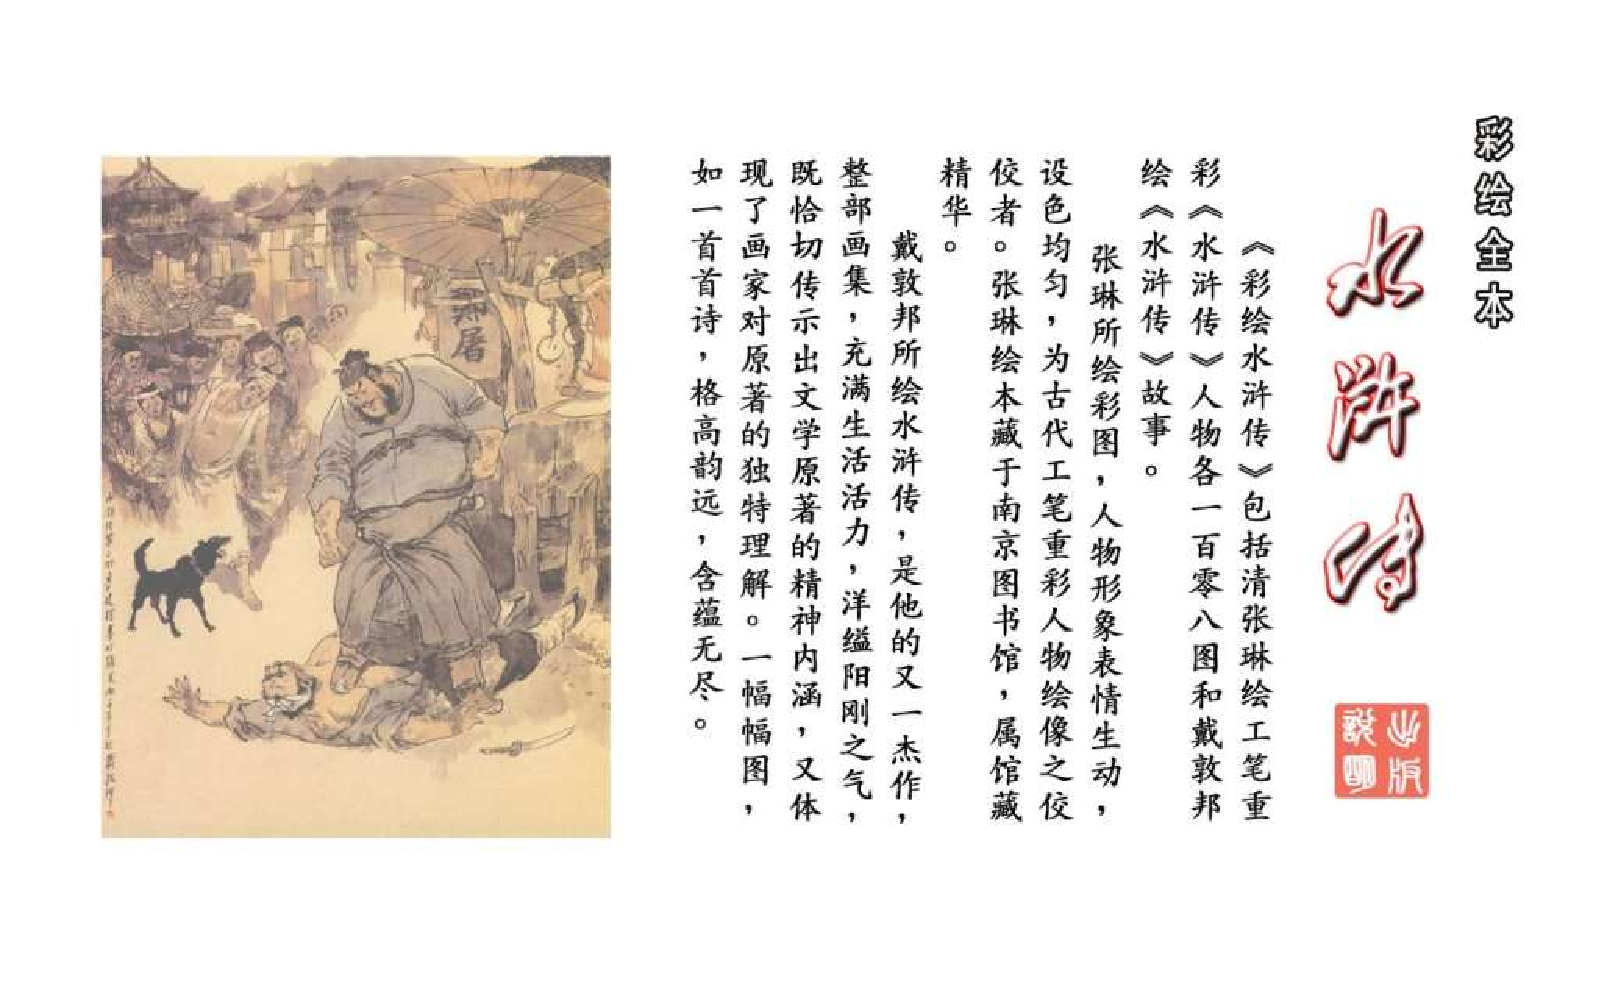 彩绘全本
水浒传
出版
说明
《彩绘水浒传》包括清张琳绘工笔重
彩《水浒传》人物各一百零八图和戴敦邦
绘《水浒传》故事。
张琳所绘彩图，人物形象表情生动，
设色均匀，为古代工笔重彩人物绘像之佼
佼者。张琳绘本藏于南京图书馆，属馆藏
精华。
戴敦邦所绘水浒传，是他的又一杰作，
整部画集，充满生活活力，洋缢阳刚之气，
既恰切传示出文学原著的精神内涵，又体
现了画家对原著的独特理解。一幅幅图，
如一首首诗，格高韵远，含蕴无尽。